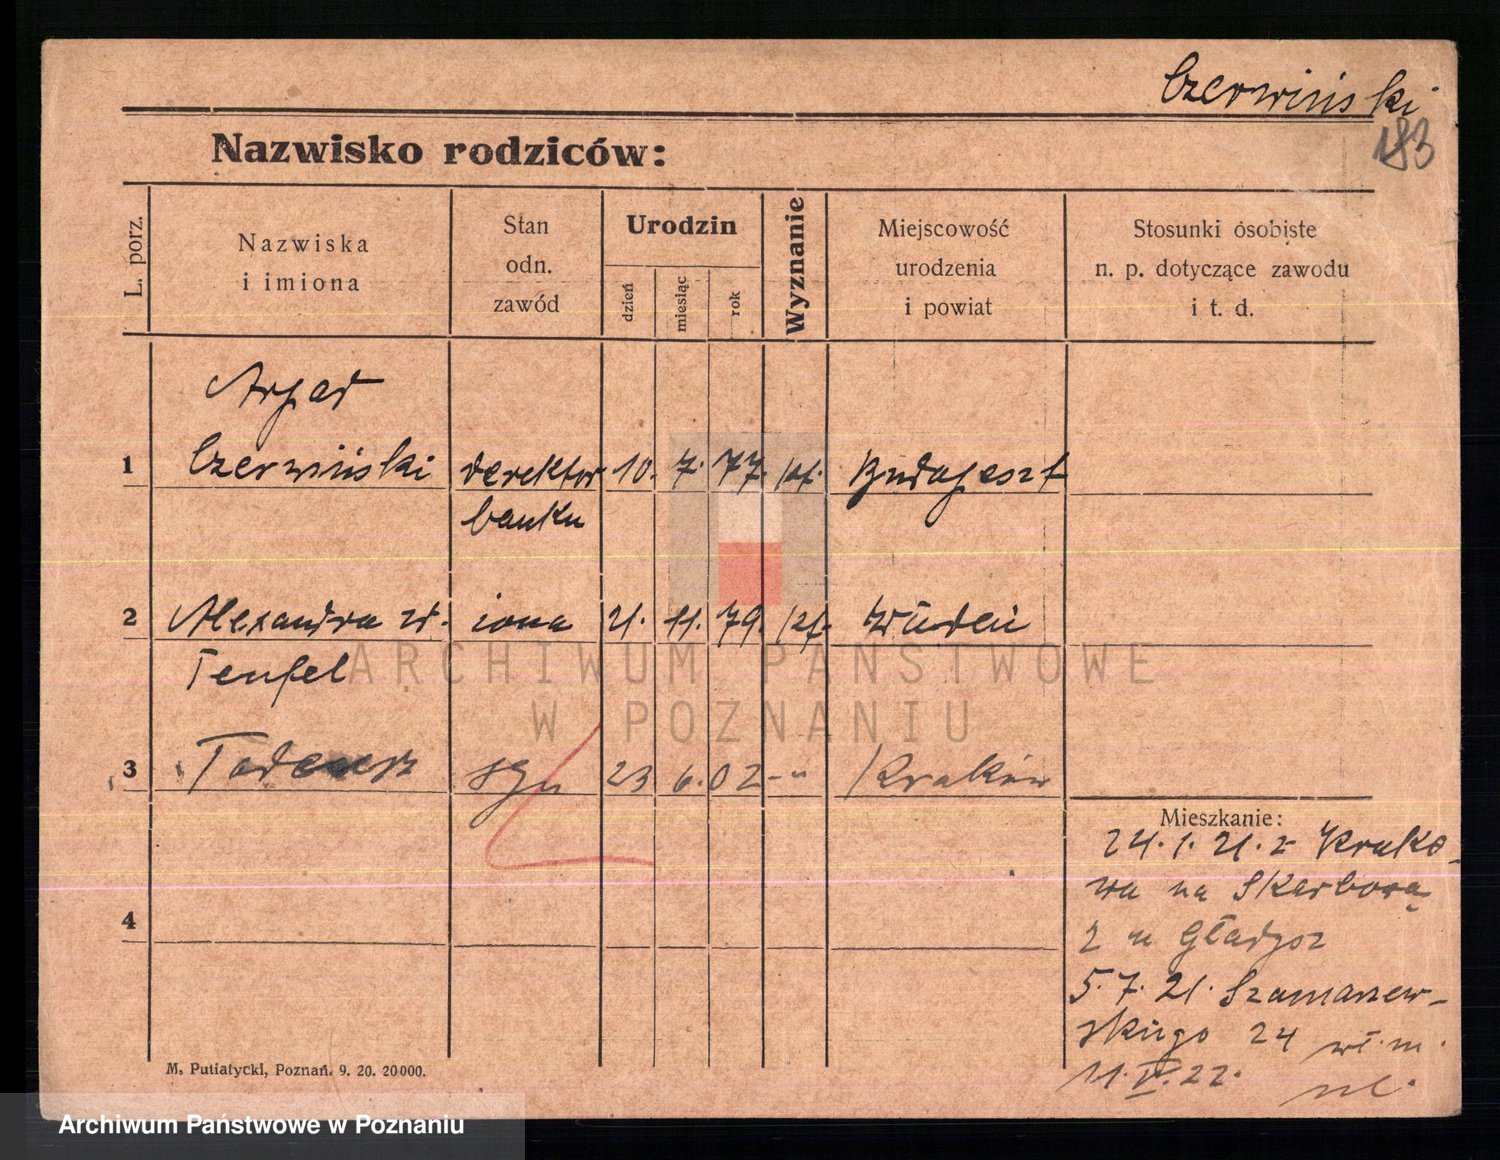 Czerwiński
183
Nazwisko rodziców:
L. porz.
Nazwiska
i imiona
Stan
odn.
zawód
Urodzin
dzień
miesiąc
rok
Wyznanie
Miejscowość
urodzenia
i powiat
Stosunki osobiste
n. p. dotyczące zawodu
i t. d.
Arpad
1 Czerwiński derektor 10. 7. 77. kat. Budapeszt
banku
2 Alexandra zd. żona 21. 11. 79. kat. Wiedeń
Teufel
ARCHIWUM PAŃSTWOWE
W POZNANIU
3 Tadeusz syn 23 6. 02 -"- Kraków
Mieszkanie:
24. 1. 21. z Krako-
wa na Skarbową
2 u
4
5. 7. 21. Szamarzew-
skiego 24 wł. m.
11. V. 22.
M. Putiatycki, Poznań. 9. 20. 20000.
Archiwum Państwowe w Poznaniu